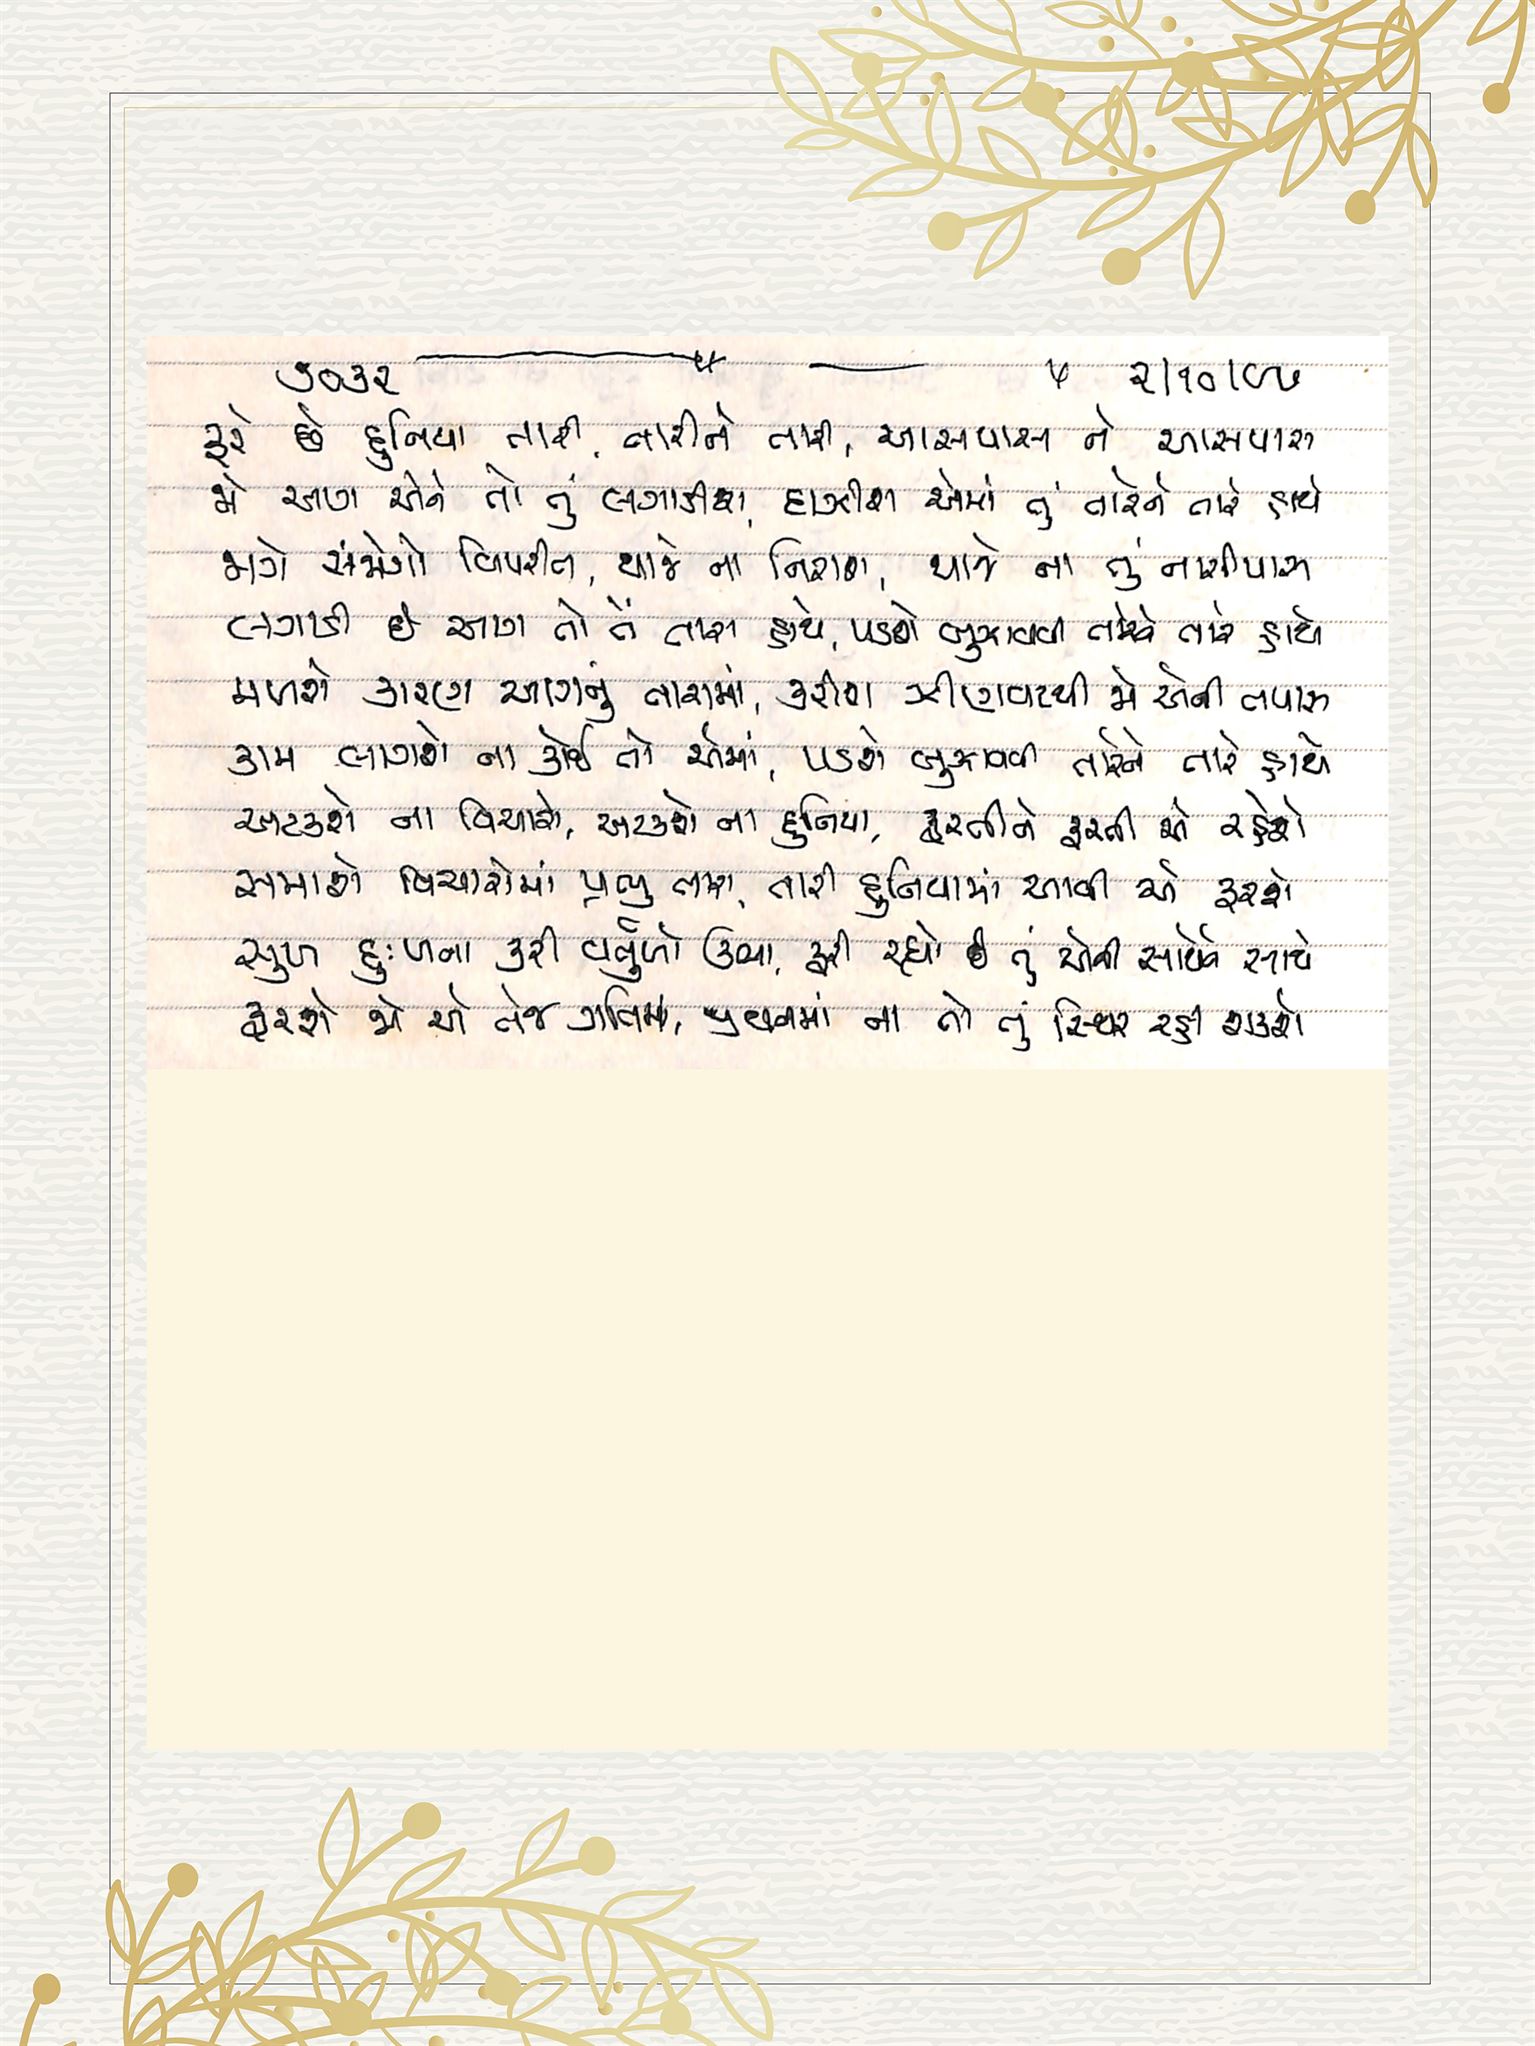 ૭૦૩૨ ૫ ૨/૧૦/૯૭
ફરે છે દુનિયા તારી, તારીને તારી, આસપાસ ને આસપાસ
જો આગ એને તો તું લગાડીશ, દાઝીશ એમાં તું તારેને તારે હાથે
જાગે સંજોગો વિપરીત, થાજે ના નિરાશ, થાજે ના તું નાસીપાસ
લગાડી છે આગ તો તેં તારા હાથે, પડશે બુઝાવવી તારે તારે હાથે
મળશે કારણ આગનું તારામાં, કરીશ ઝીણવટથી જો એની તપાસ
કામ લાગશે ના કોઈ તો એમાં, પડશે બુઝાવવી તારેને તારે હાથે
અટકશે ના વિચારો, અટકશે ના દુનિયા, ફરતીને ફરતી એ રહેશે
સમાશે વિચારોમાં પ્રભુ તારા, તારી દુનિયામાં આવી એ ફરશે
સુખ દુઃખના કરી વર્તુળો ઊભા, ફરી રહ્યો છે તું એની સાથેને સાથે
ફરશે જો એ તેજ ગતિમાં, પ્રથમમાં ના તો તું સ્થિર રહી શકશે